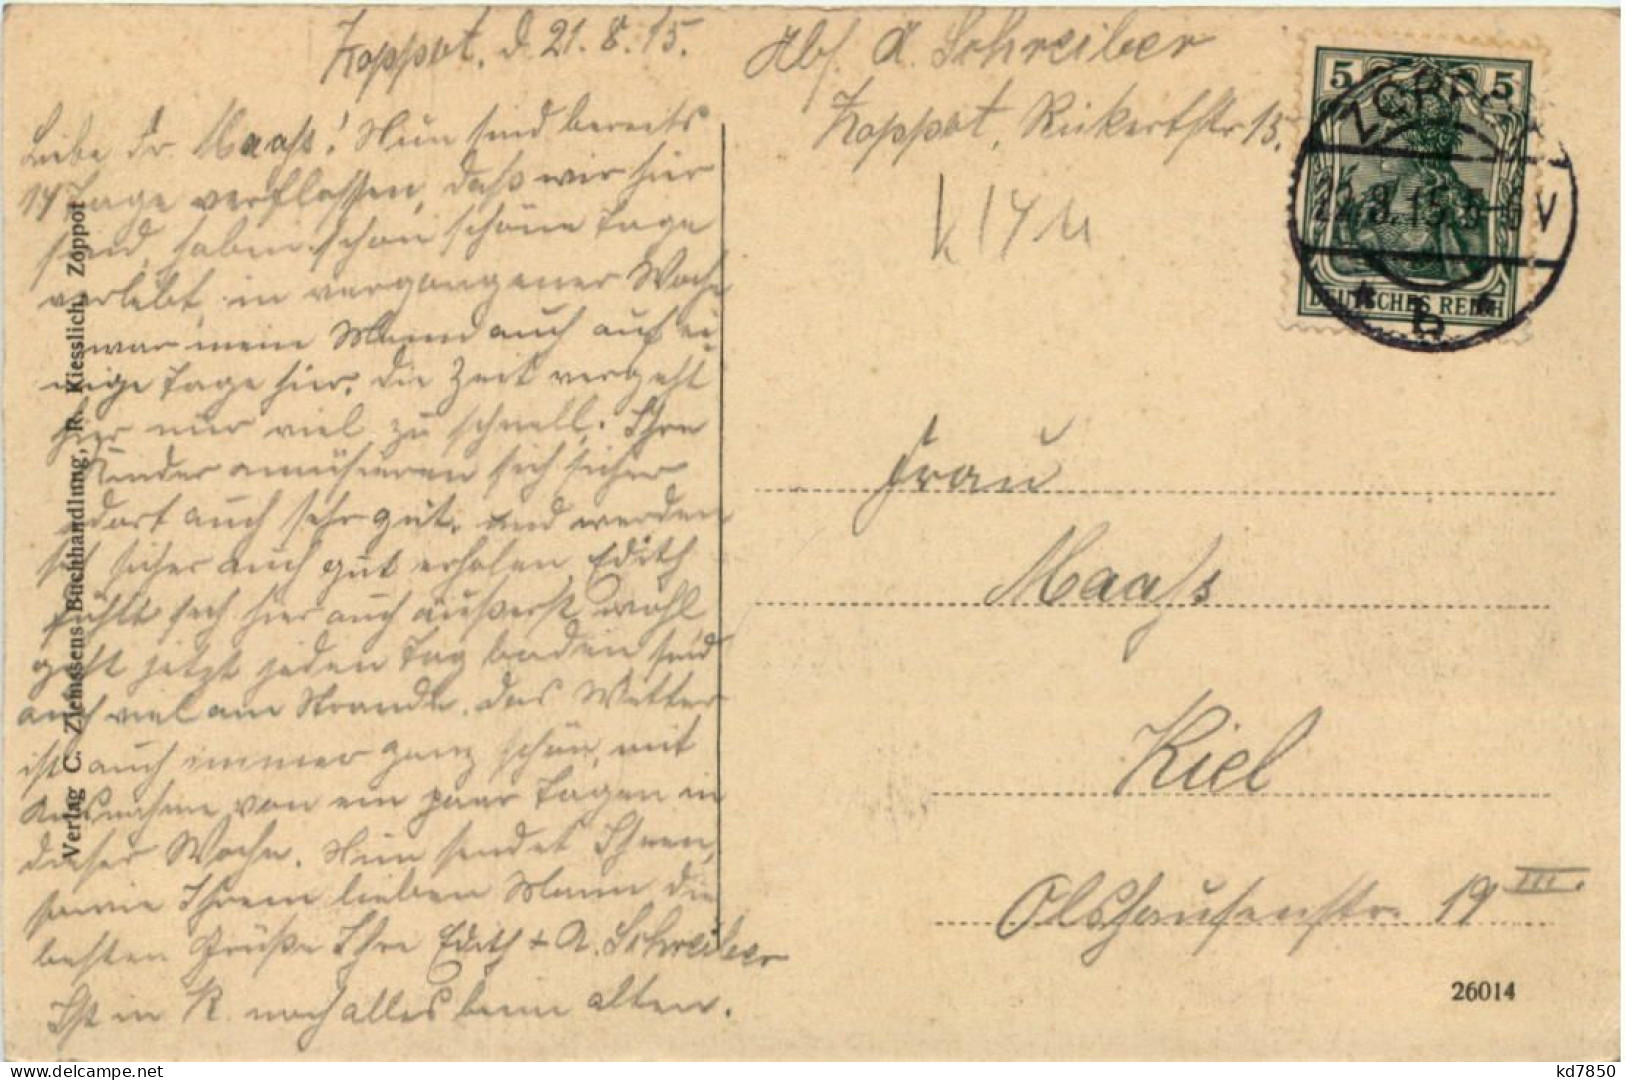 Zoppot, d. 21.8.15.
Liebe Fr. Maaß! Nun sind bereits
14 Tage verflossen, daß wir hier
sind, haben schon schöne Tage
verlebt, in vergangener Woche
war mein Mann auch auf ei-
nige Tage hier. Die Zeit vergeht
hier nur viel zu schnell. Ihre
Kinder amüsieren sich sicher
dort auch sehr gut, und werden
sich sicher auch gut erholen. Edith
fühlt sich hier auch äußerst wohl
geht jetzt jeden Tag baden sind
auch viel am Strande. Das Wetter
ist auch immer ganz schön, mit
Ausnahme von ein paar Tagen in
dieser Woche. Nun sendet Ihnen,
sowie Ihrem lieben Mann die
besten Grüße Ihre Edith + A. Schreiber
Ist in K. noch alles beim alten.
Verlag C. Ziemssens Buchhandlung, R. Kiesslich, Zoppot
Abs. A. Schreiber
Zoppot, Rickertstr 15.
k 14
5 5
ZOPPOT
22.8.15.5-6V
* b *
DEUTSCHES REICH
Frau
Maaß
Kiel
Olshausenstr. 19 III.
26014
kd7850